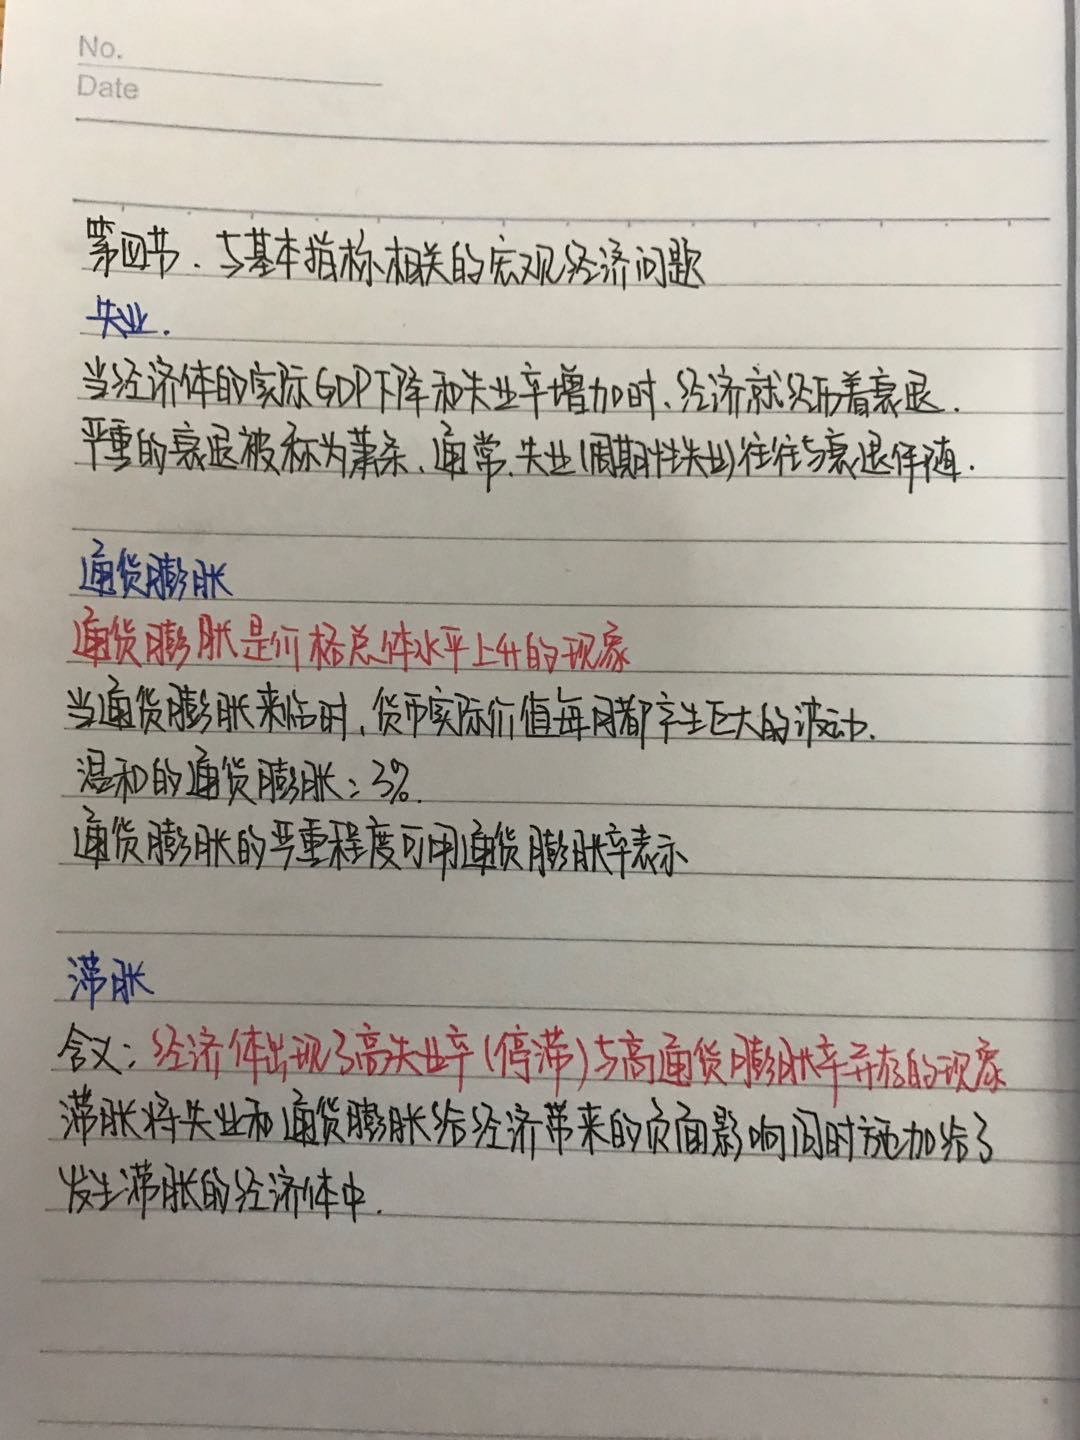 No.
Date
第四节.与基本指标相关的宏观经济问题
失业.
当经济体的实际GDP下降和失业率增加时、经济就经历着衰退.
严重的衰退被称为萧条、通常、失业(周期性失业)往往与衰退伴随.
通货膨胀
通货膨胀是价格总体水平上升的现象
当通货膨胀来临时,货币实际价值每月都产生巨大的波动.
温和的通货膨胀:3%.
通货膨胀的严重程度可用通货膨胀率表示
滞胀
含义:经济体出现了高失业率(停滞)与高通货膨胀率并存的现象
滞胀将失业和通货膨胀给经济带来的负面影响同时施加给了
发生滞胀的经济体中.